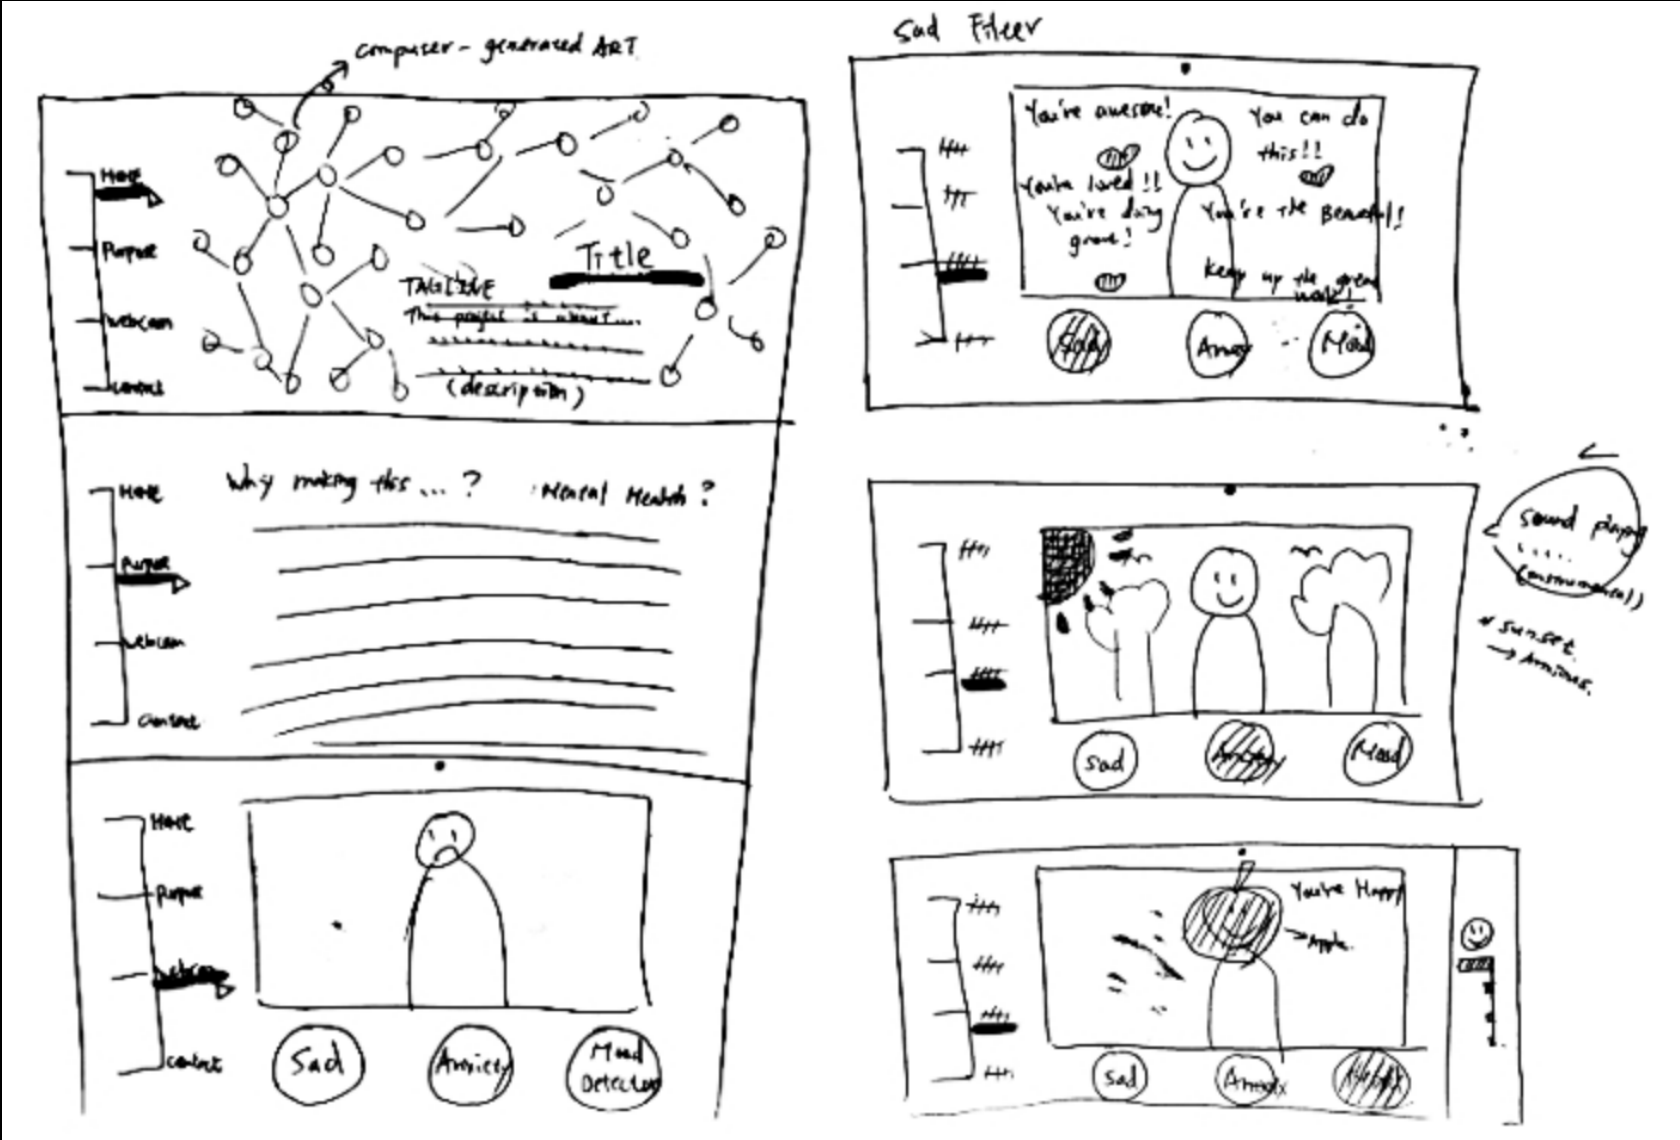 computer-generated ART
Home
Purpose
Webcam
Contact
Title
TAGLINE
This project is about....
(description)
Home
Purpose
Webcam
Contact
Why making this...?
Mental Health?
Home
Purpose
Webcam
Contact
Sad
Anxiety
Mood
Detector
Sad Filter
You're awesome!
You can do
this!!
You're loved!!
You're doing
great!
You're the Beautiful!
Keep up the great
work!
Sad
Mood
sound playing
.....
(instrumental)
* sunset.
→ Anxious.
Sad
Anxiety
Mood
You're Happy
Apple
Sad